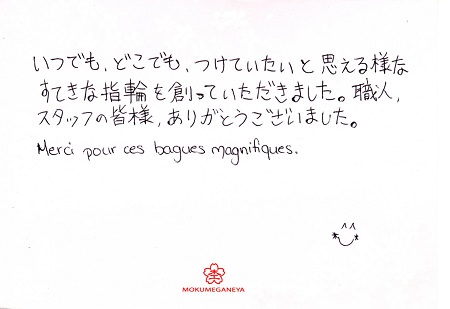 いつでも、どこでも、つけていたいと思える様な
すてきな指輪を創っていただきました。職人、
スタッフの皆様、ありがとうございました。
Merci pour ces bagues magnifiques.
MOKUMEGANEYA